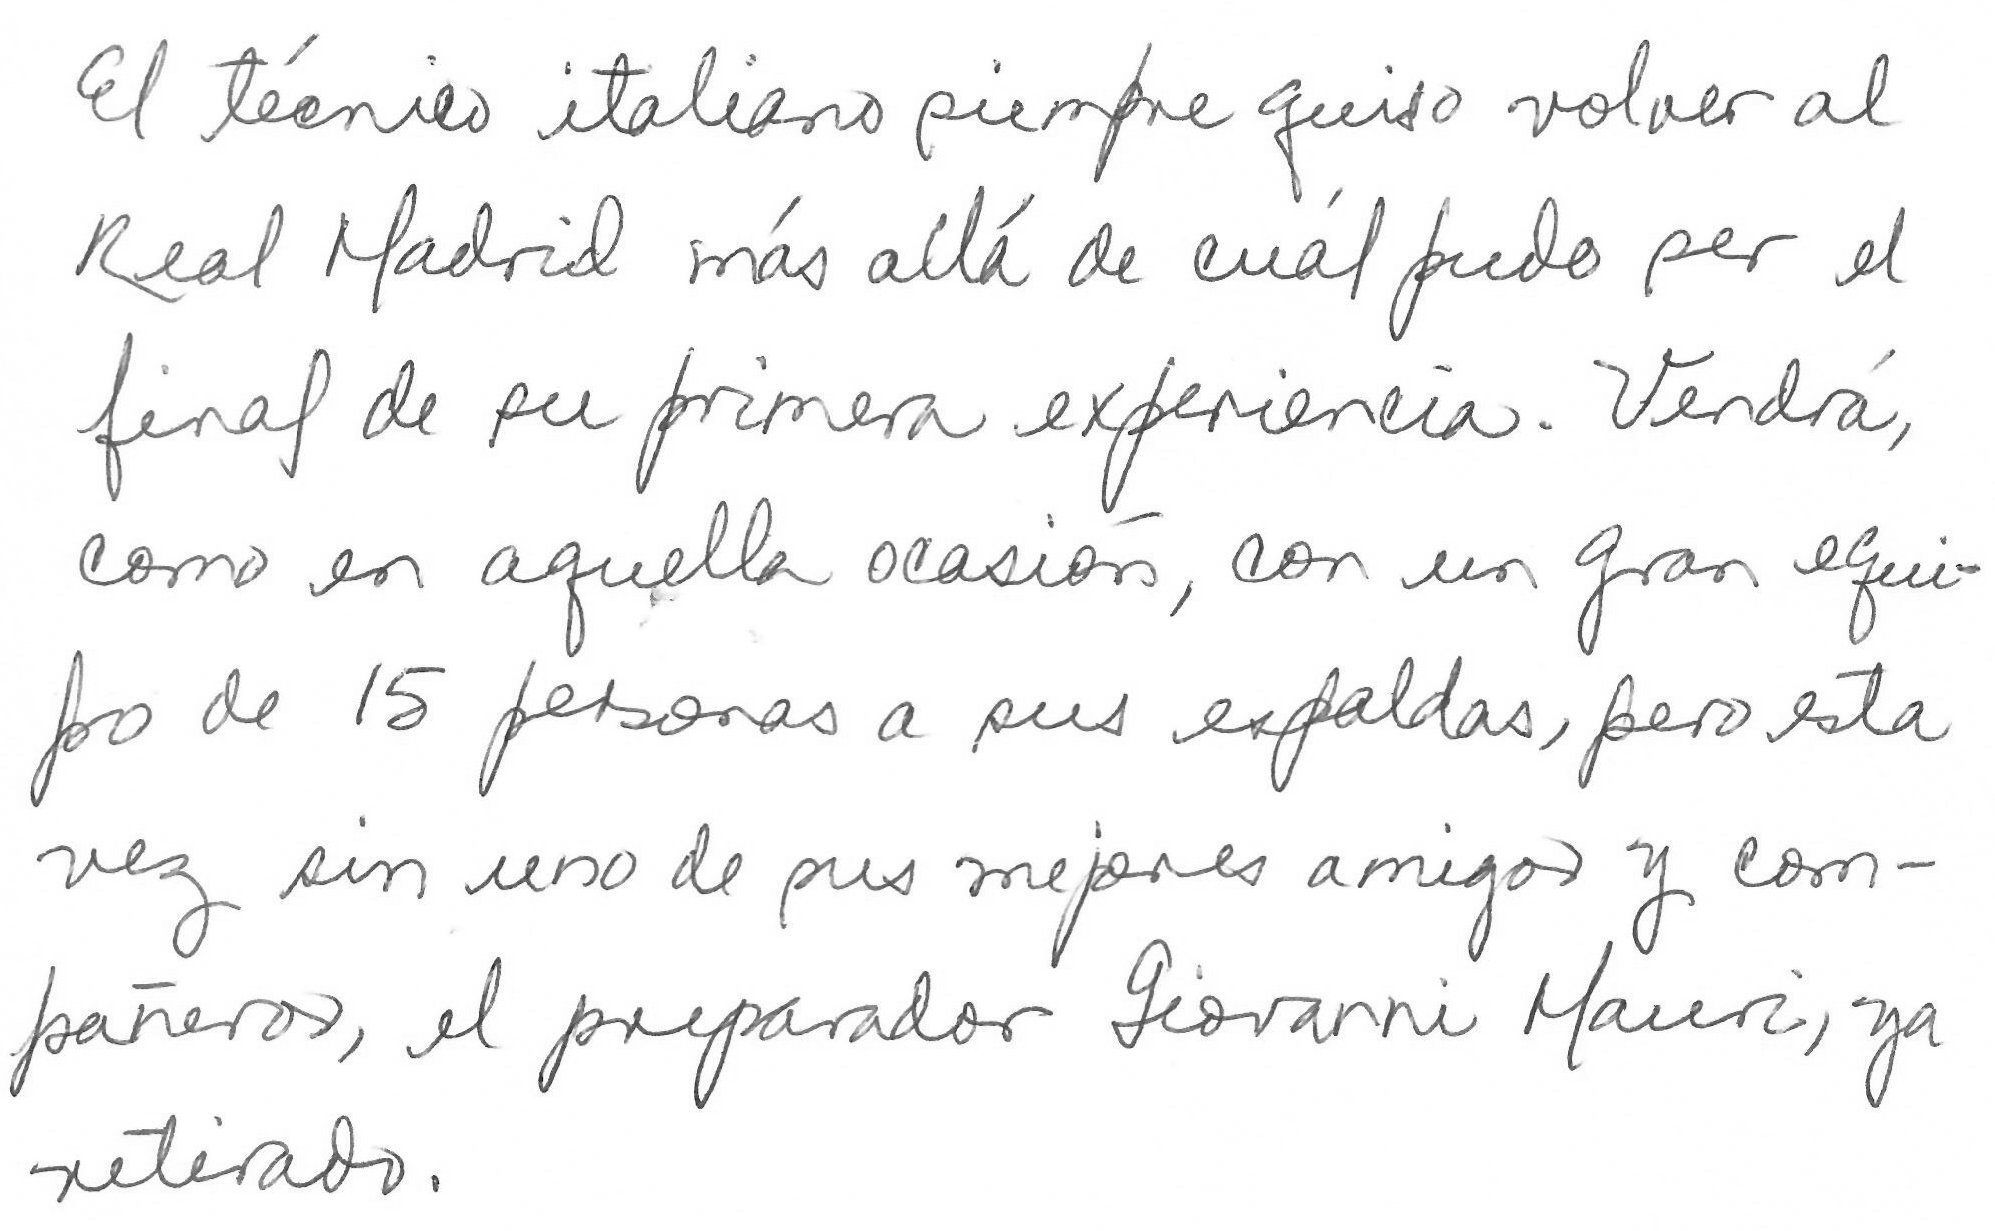 El técnico italiano siempre quiso volver al
Real Madrid más allá de cuál pudo ser el
final de su primera experiencia. Vendrá,
como en aquella ocasión, con un gran equi-
po de 15 personas a sus espaldas, pero esta
vez sin uno de sus mejores amigos y com-
pañeros, el preparador Giovanni Mauri, ya
retirado.